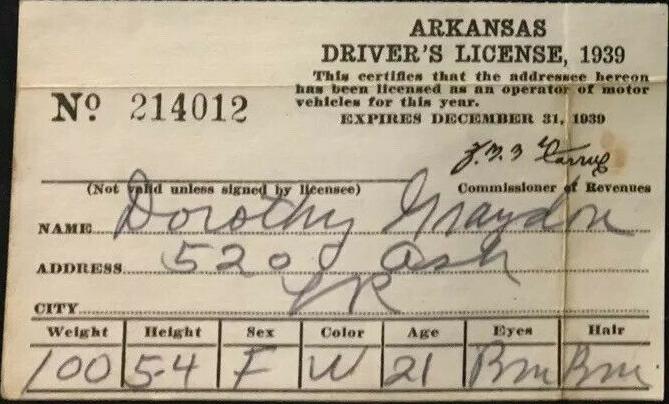 ARKANSAS
DRIVER'S LICENSE, 1939
This certifies that the addressee hereon
has been licensed as an operator of motor
vehicles for this year.
EXPIRES DECEMBER 31, 1939
Nº 214012
(Not valid unless signed by licensee)
Commissioner of Revenues
NAME Dorothy Graydon
ADDRESS 5200 Ash
CITY LR
Weight Height Sex Color Age Eyes Hair
100 5-4 F W 21 Brn Brn